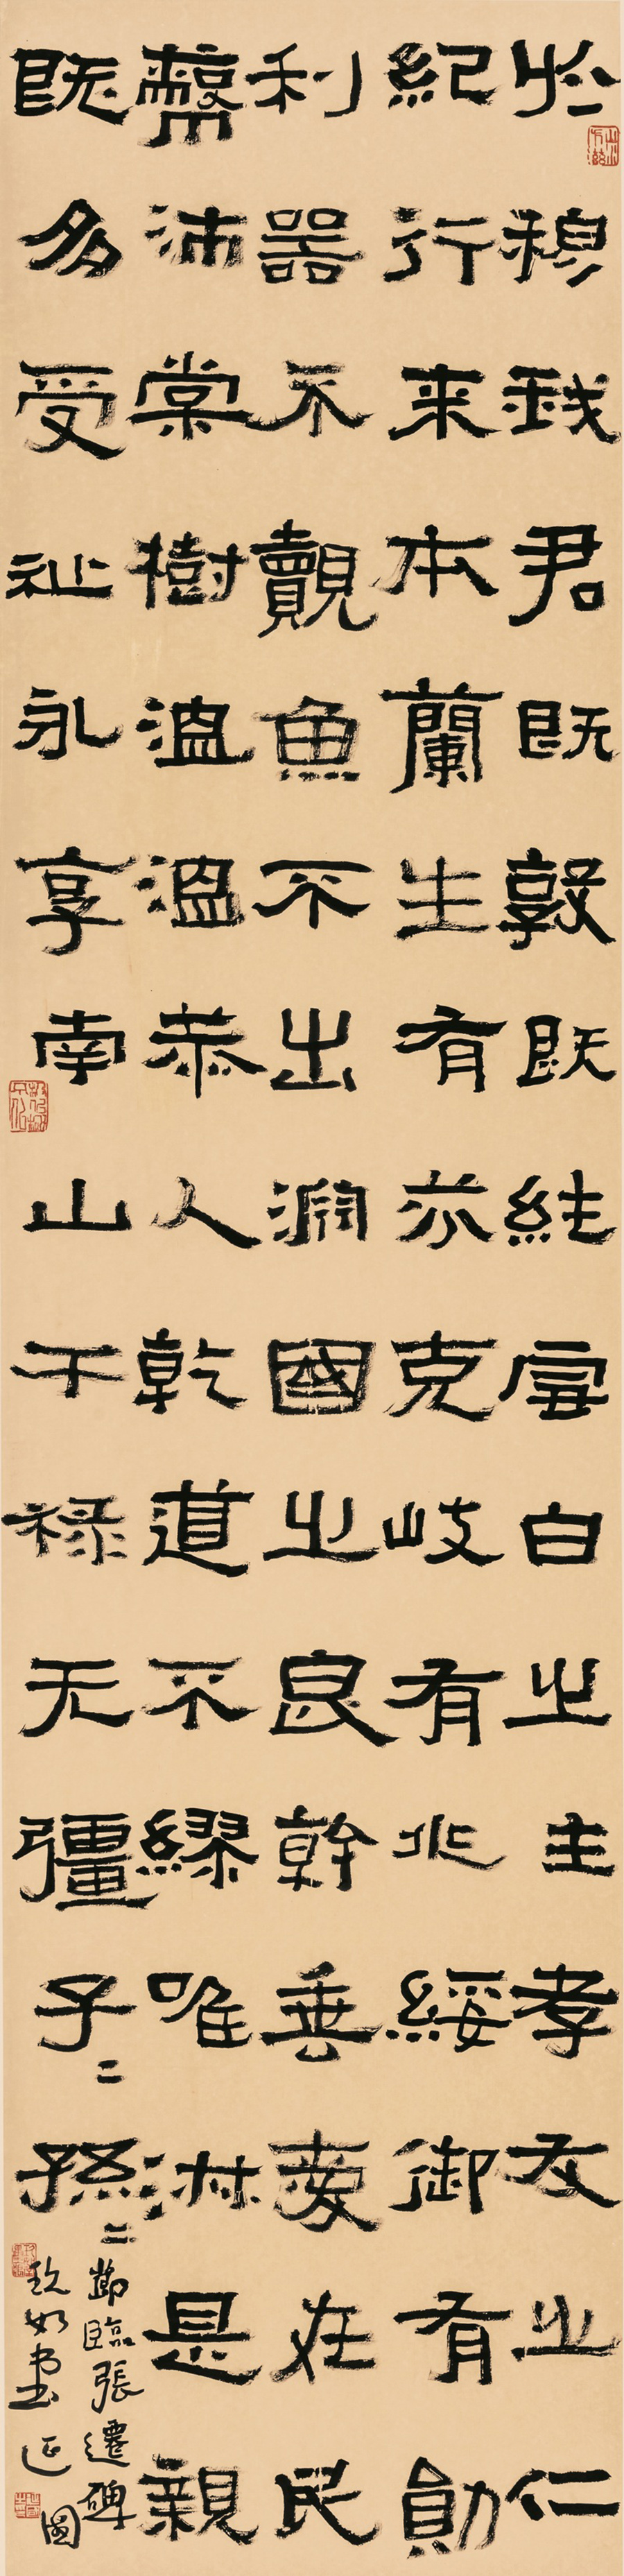 於穆我君既敦既純雪白之主孝友之仁
紀行来本蘭生有芬克岐有兆綏御有勛
利器不覿魚不出淵國之良幹垂愛在民
蔽沛棠樹溫溫恭人乾道不繆唯淑是親
既多受祉永享南山干禄无彊子〻孫〻
節臨張遷碑
如書